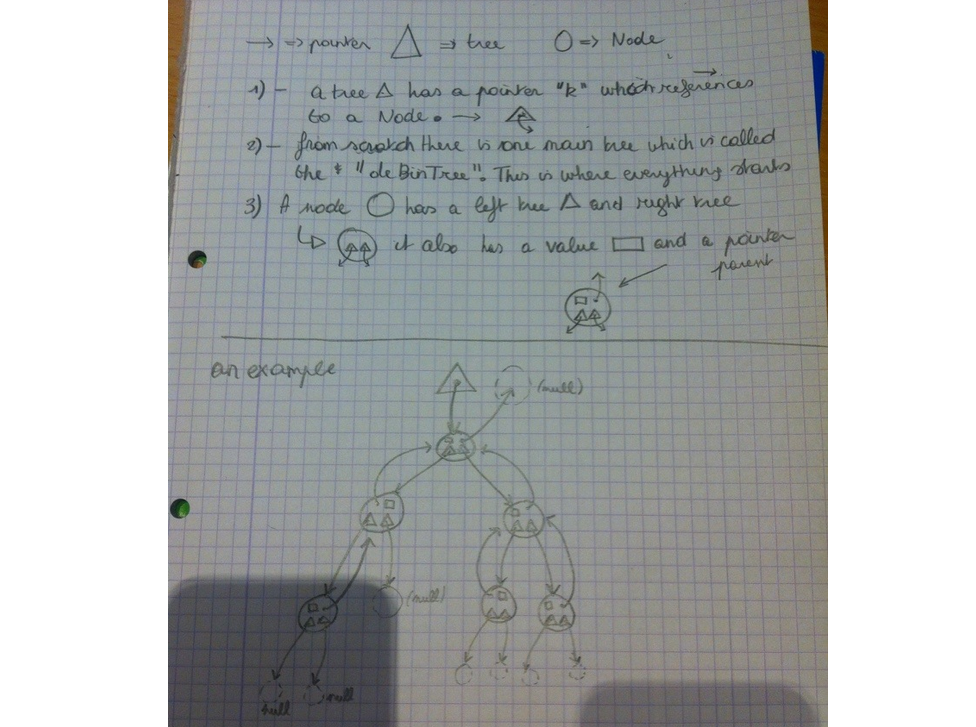 → => pointer △ => tree ○ => Node
1) - a tree △ has a pointer "k" which references
to a Node. →
2) - from scratch there is one main tree which is called
the * "deBinTree". This is where everything starts
3) A node ○ has a left tree △ and right tree
it also has a value ▭ and a pointer
parent
an example
(null)
(null)
null
null